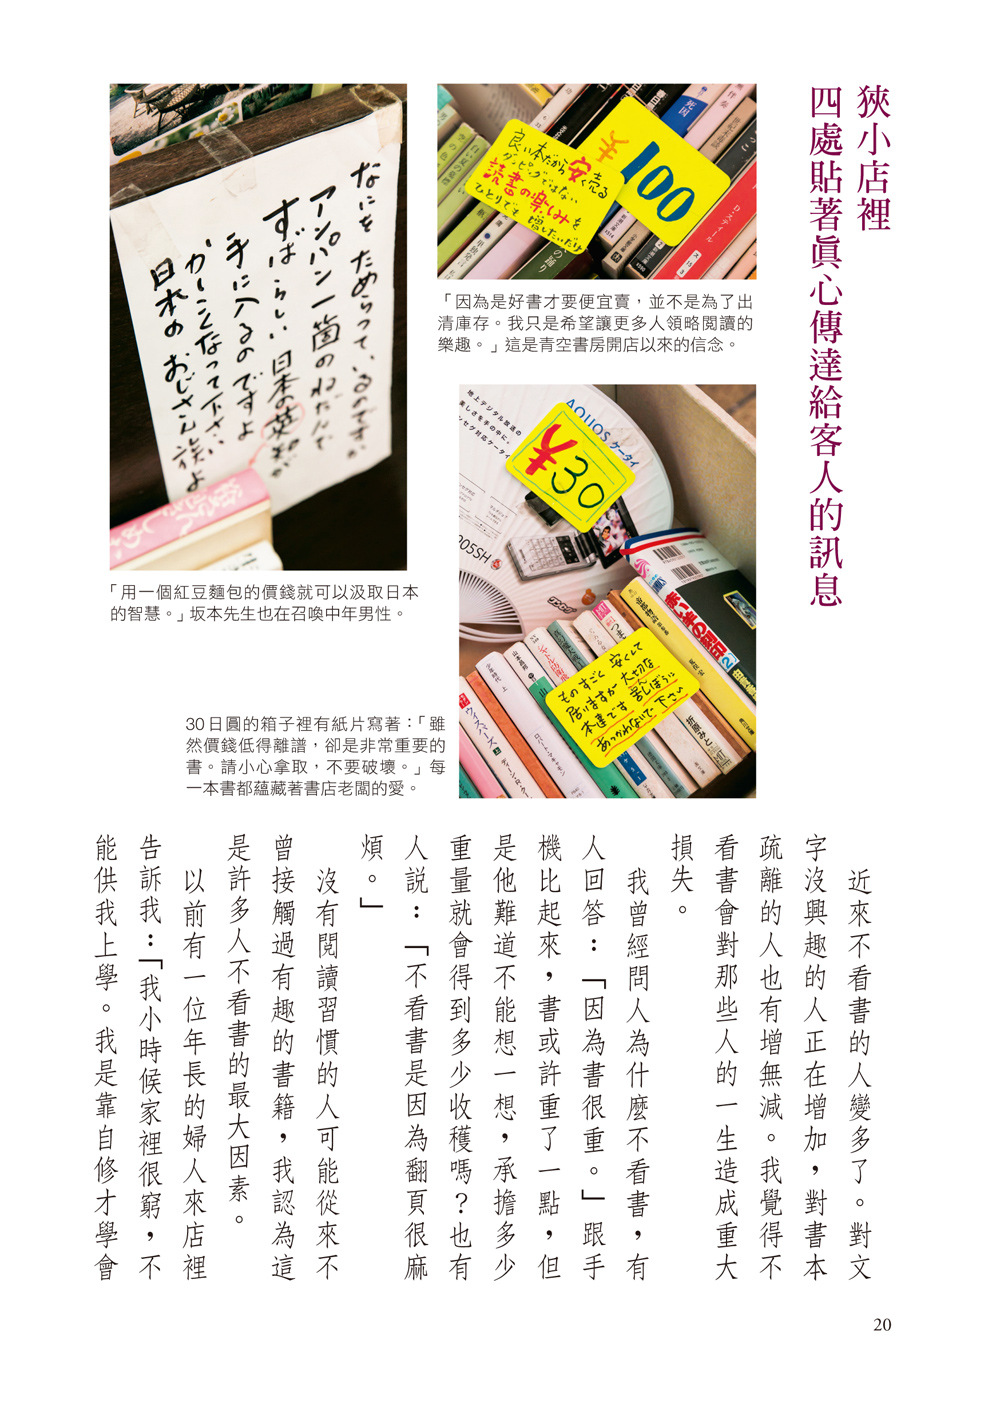 狹小店裡
四處貼著真心傳達給客人的訊息
なにを ためらって、いるのですか
アンパン一箇のねだんで
すばらしい 日本の英知が
手に入るのですよ
かしこくなって下さい
日本の おじさん族よ
良い本だから安く売る
ダンピングではない
読書の楽しみを
ひとりでも 増したいだけ
¥100
「因為是好書才要便宜賣，並不是為了出
清庫存。我只是希望讓更多人領略閱讀的
樂趣。」這是青空書房開店以來的信念。
「用一個紅豆麵包的價錢就可以汲取日本
的智慧。」坂本先生也在召喚中年男性。
地上デジタル放送の
美しさを手の中に。
ンセグ対応ケータイ
AQUOS ケータイ
¥30
005SH
赤い手の刻印②
ものすごく 安くして
居りますが 大切な
本達です
あつかわないで 下さい
ウィスパーズ 上
折原みと
30日圓的箱子裡有紙片寫著：「雖
然價錢低得離譜，卻是非常重要的
書。請小心拿取，不要破壞。」每
一本書都蘊藏著書店老闆的愛。
近來不看書的人變多了。對文
字沒興趣的人正在增加，對書本
疏離的人也有增無減。我覺得不
看書會對那些人的一生造成重大
損失。
我曾經問人為什麼不看書，有
人回答：「因為書很重。」跟手
機比起來，書或許重了一點，但
是他難道不能想一想，承擔多少
重量就會得到多少收穫嗎？也有
人說：「不看書是因為翻頁很麻
煩。」
沒有閱讀習慣的人可能從來不
曾接觸過有趣的書籍，我認為這
是許多人不看書的最大因素。
以前有一位年長的婦人來店裡
告訴我：「我小時候家裡很窮，不
能供我上學。我是靠自修才學會
20